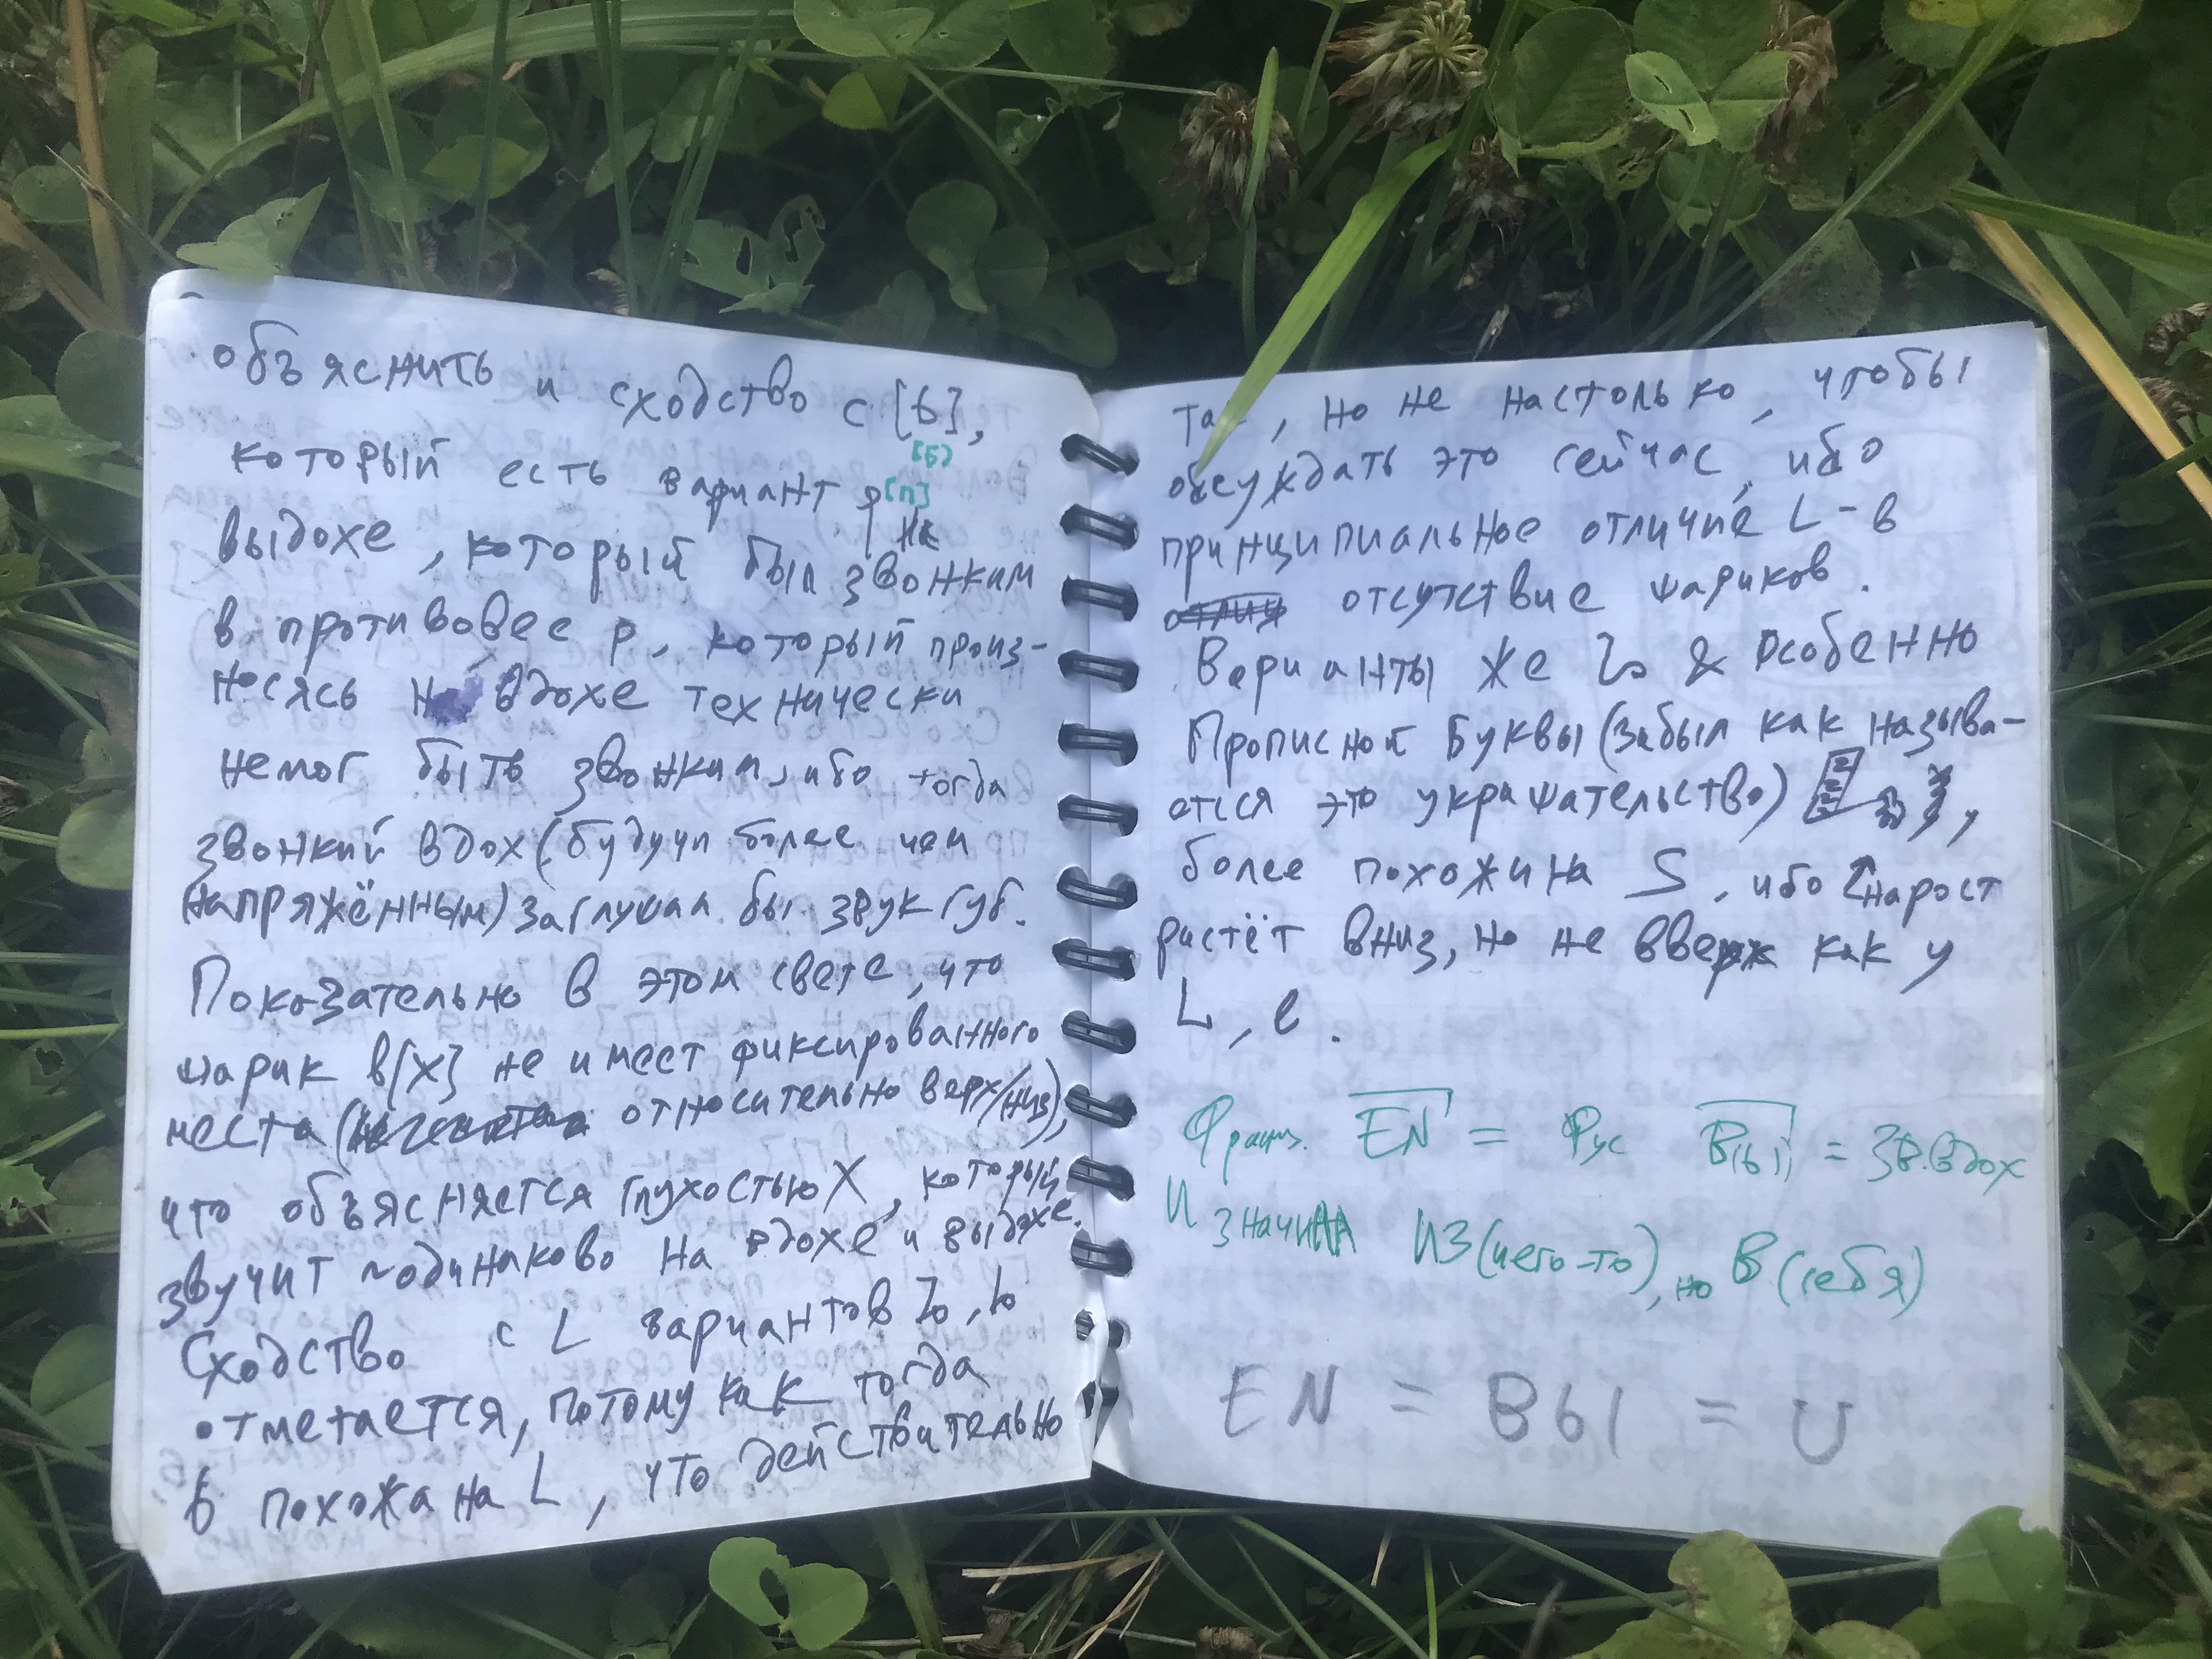 объяснить и сходство с [ь],
который есть вариант
[ъ]
[п]
выдохе, который был
не
звонким
в противовес р, который произ-
носясь на вдохе технически
не мог быть звонким, ибо тогда
звонкий вдох (будучи более
напряжённым) заглушал бы звук губ.
Показательно в этом свете, что
шарик в [х] не имеет фиксированного
места (
относительно верх/низ),
что объясняется глухостью Х, который
звучит одинаково на вдохе и выдохе.
Сходство с L вариантов
отмечается, потому как тогда
в похожа на L, что действительно
так, но не настолько, чтобы
обсуждать это сейчас ибо
принципиальное отличие L - в
отсутствие шариков.
Варианты же
особенно
прописной буквы (забыл как называ-
ется это украшательство)
более похожи на
, ибо нарост
растёт вниз, но не вверх как у
L, ℓ.
Франц. EN = Рус В[ь] = Зв. Вдох
И значила ИЗ (чего-то), но В (себя)
EN = ВЫ = U